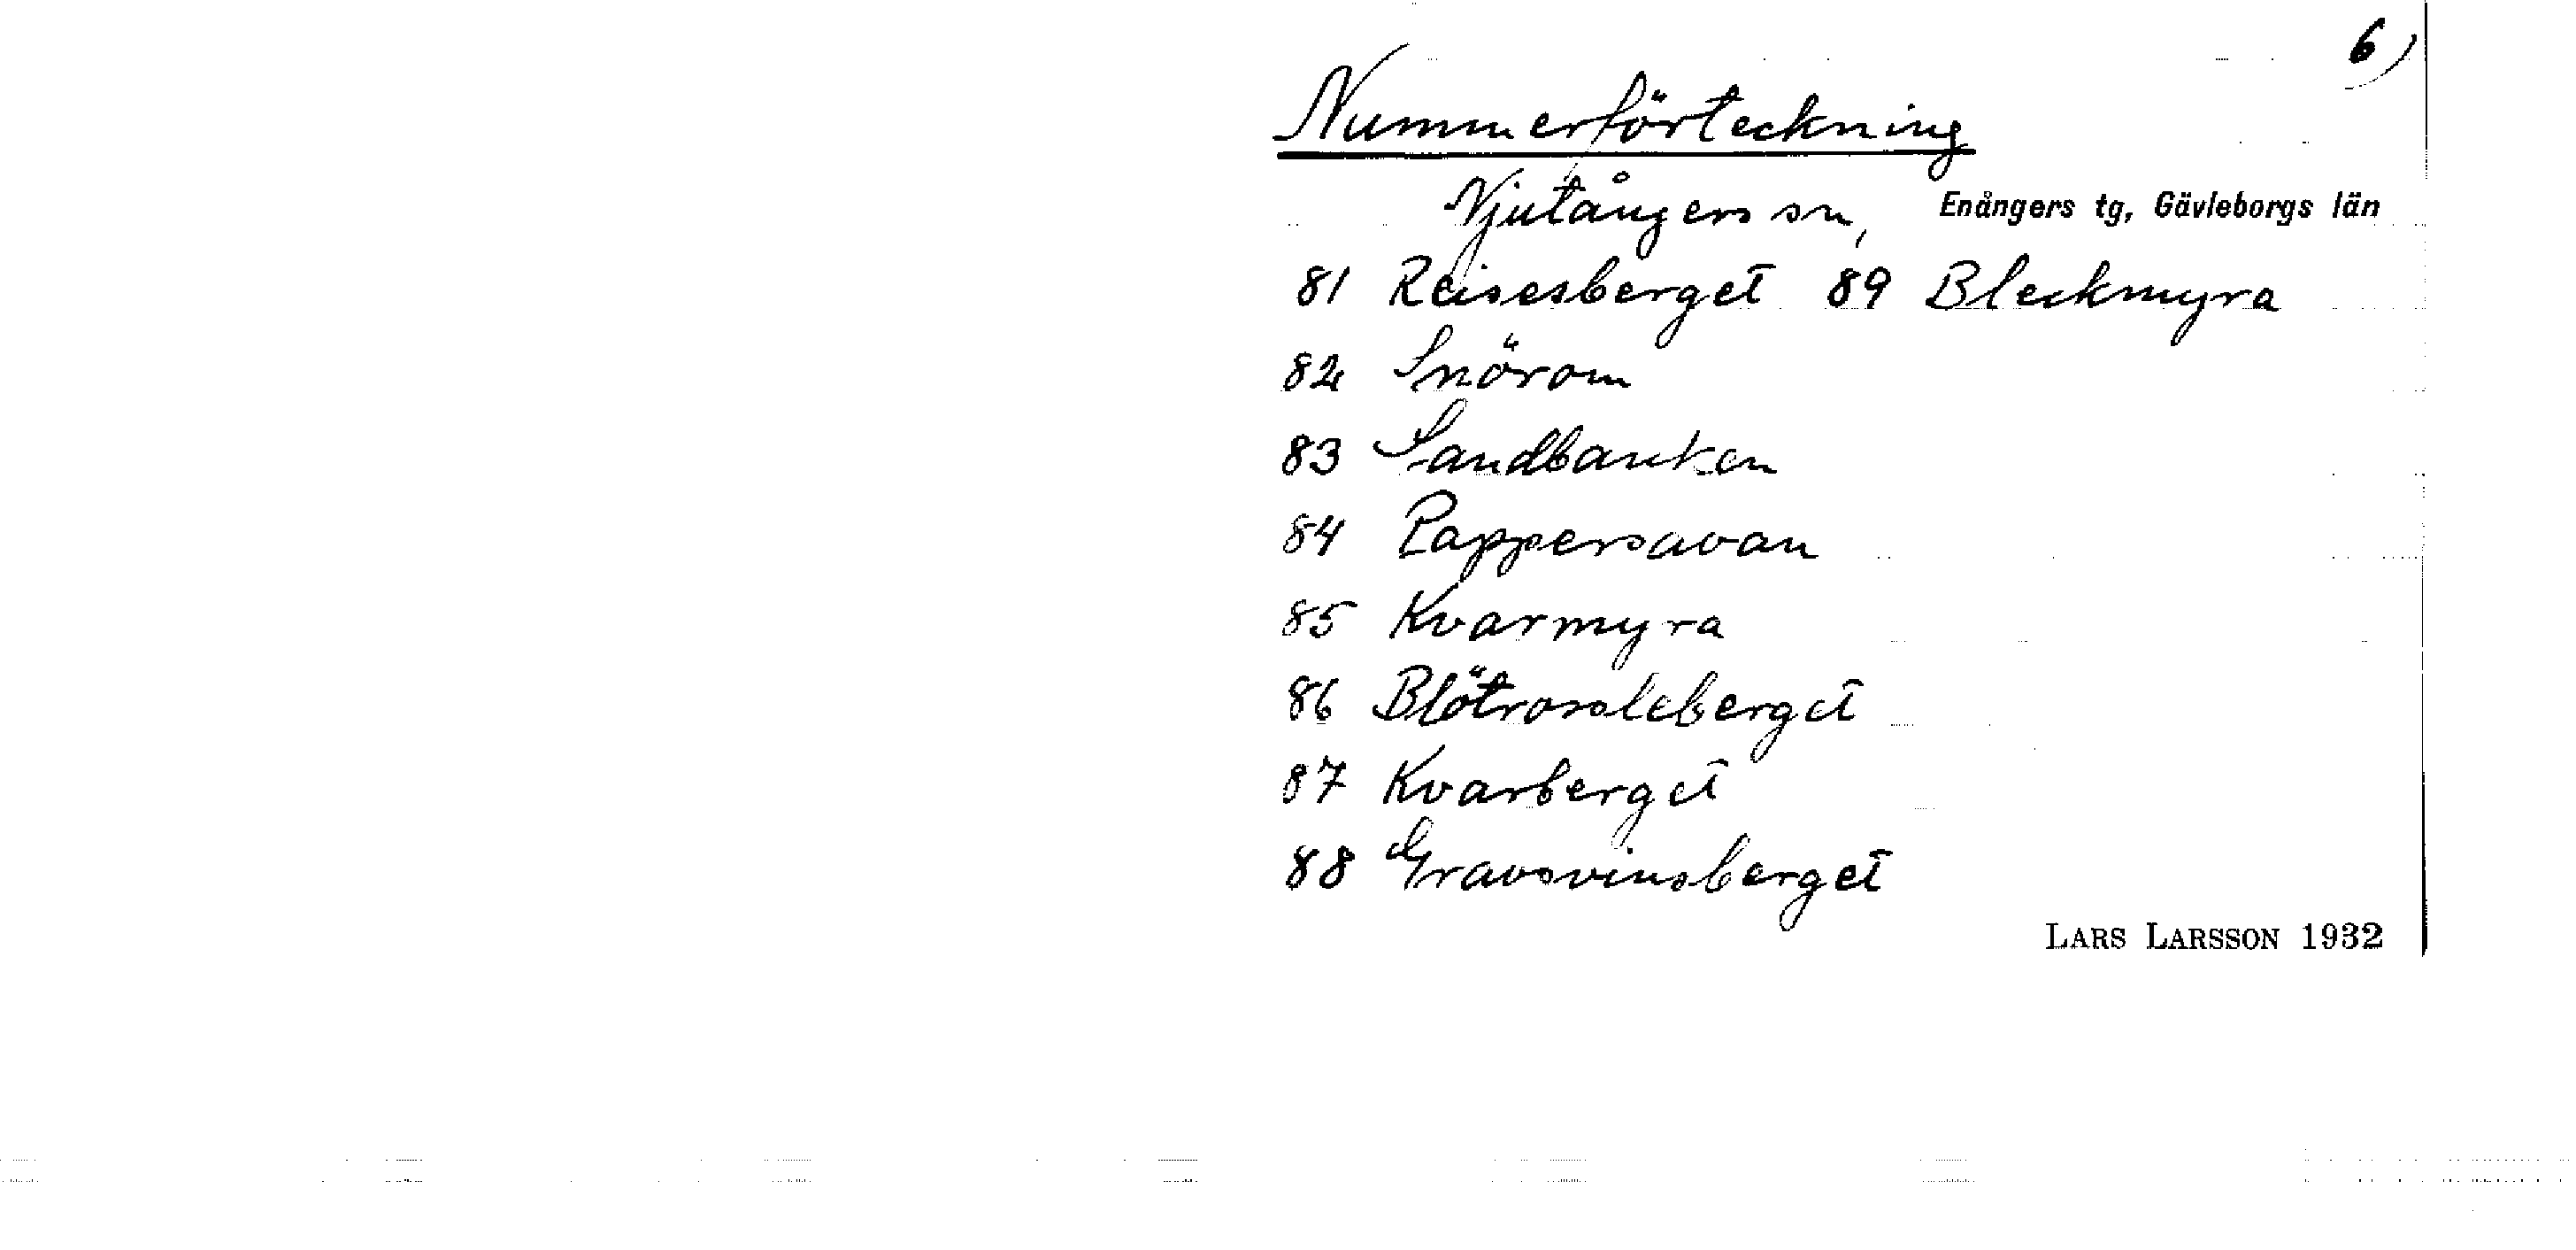 6)
Nummerförteckning
Njutångers sn, Enångers tg, Gävleborgs län
81 Reisesberget 89 Bleckmyra
82 Snörom
83 Sandbanken
84 Pappersavan
85 Kvarmyra
86 Blötrossleberget
87 Kvarberget
88 Gravsvinsberget
LARS LARSSON 1932